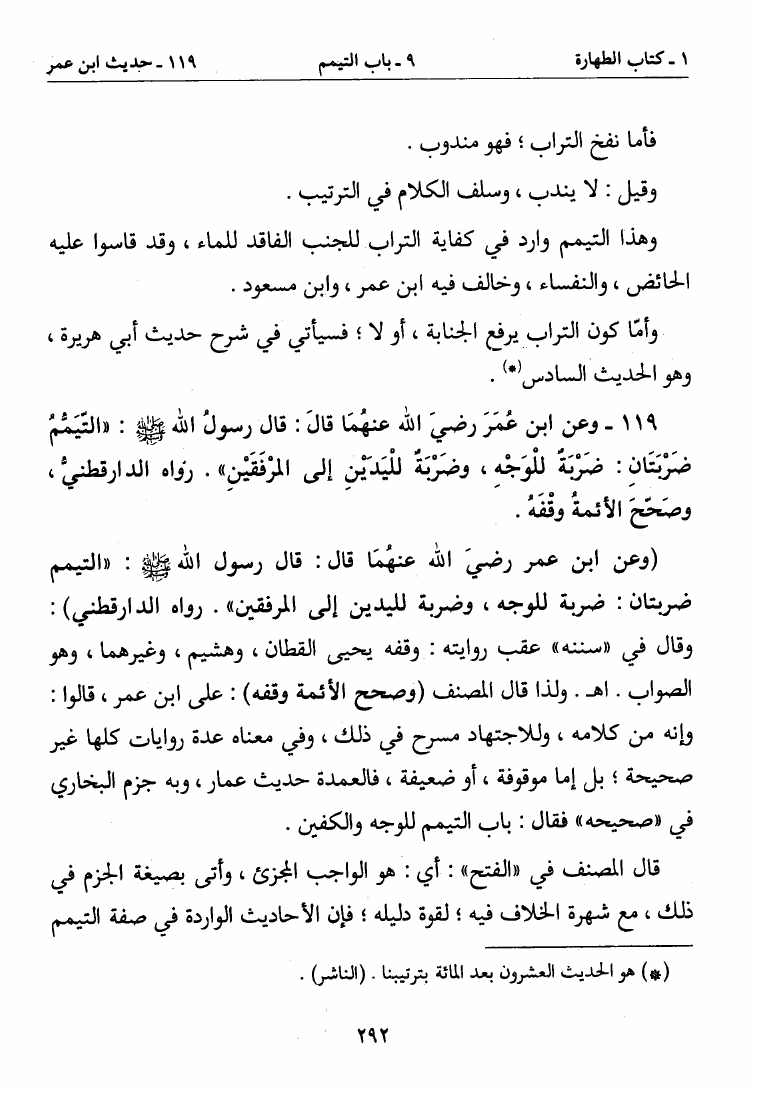 ١ ـ كتاب الطهارة ٩ ـ باب التيمم ١١٩ ـ حديث ابن عمر
فأما نفخ التراب ؛ فهو مندوب .
وقيل : لا يندب ، وسلف الكلام في الترتيب .
وهذا التيمم وارد في كفاية التراب للجنب الفاقد للماء ، وقد قاسوا عليه
الحائض ، والنفساء ، وخالف فيه ابن عمر ، وابن مسعود .
وأمّا كون التراب يرفع الجنابة ، أو لا ؛ فسيأتي في شرح حديث أبي هريرة ،
وهو الحديث السادس(*) .
١١٩ ـ وعن ابن عُمَرَ رضيَ الله عنهُمَا قالَ : قال رسولُ الله ﷺ : «التّيَمُّمُ
ضَرْبَتَانِ : ضَرْبَةٌ للْوَجْهِ ، وضَرْبَةٌ لليَدَيْنِ إلى المرْفَقَيْنِ» . رَواه الدارقطنيُّ ،
وصَحّحَ الأئمةُ وقْفَهُ .
(وعن ابن عمر رضيَ الله عنهُمَا قال : قال رسول الله ﷺ : «التيمم
ضربتان : ضربة للوجه ، وضربة لليدين إلى المرفقين» . رواه الدارقطني) :
وقال في «سننه» عقب روايته : وقفه يحيى القطان ، وهشيم ، وغيرهما ، وهو
الصواب . اهـ . ولذا قال المصنف (وصحح الأئمة وقفه) : على ابن عمر ، قالوا :
وإنه من كلامه ، وللاجتهاد مسرح في ذلك ، وفي معناه عدة روايات كلها غير
صحيحة ؛ بل إما موقوفة ، أو ضعيفة ، فالعمدة حديث عمار ، وبه جزم البخاري
في «صحيحه» فقال : باب التيمم للوجه والكفين .
قال المصنف في «الفتح» : أي : هو الواجب المجزئ ، وأتى بصيغة الجزم في
ذلك ، مع شهرة الخلاف فيه ؛ لقوة دليله ؛ فإن الأحاديث الواردة في صفة التيمم
(*) هو الحديث العشرون بعد المائة بترتيبنا . (الناشر) .
٢٩٢